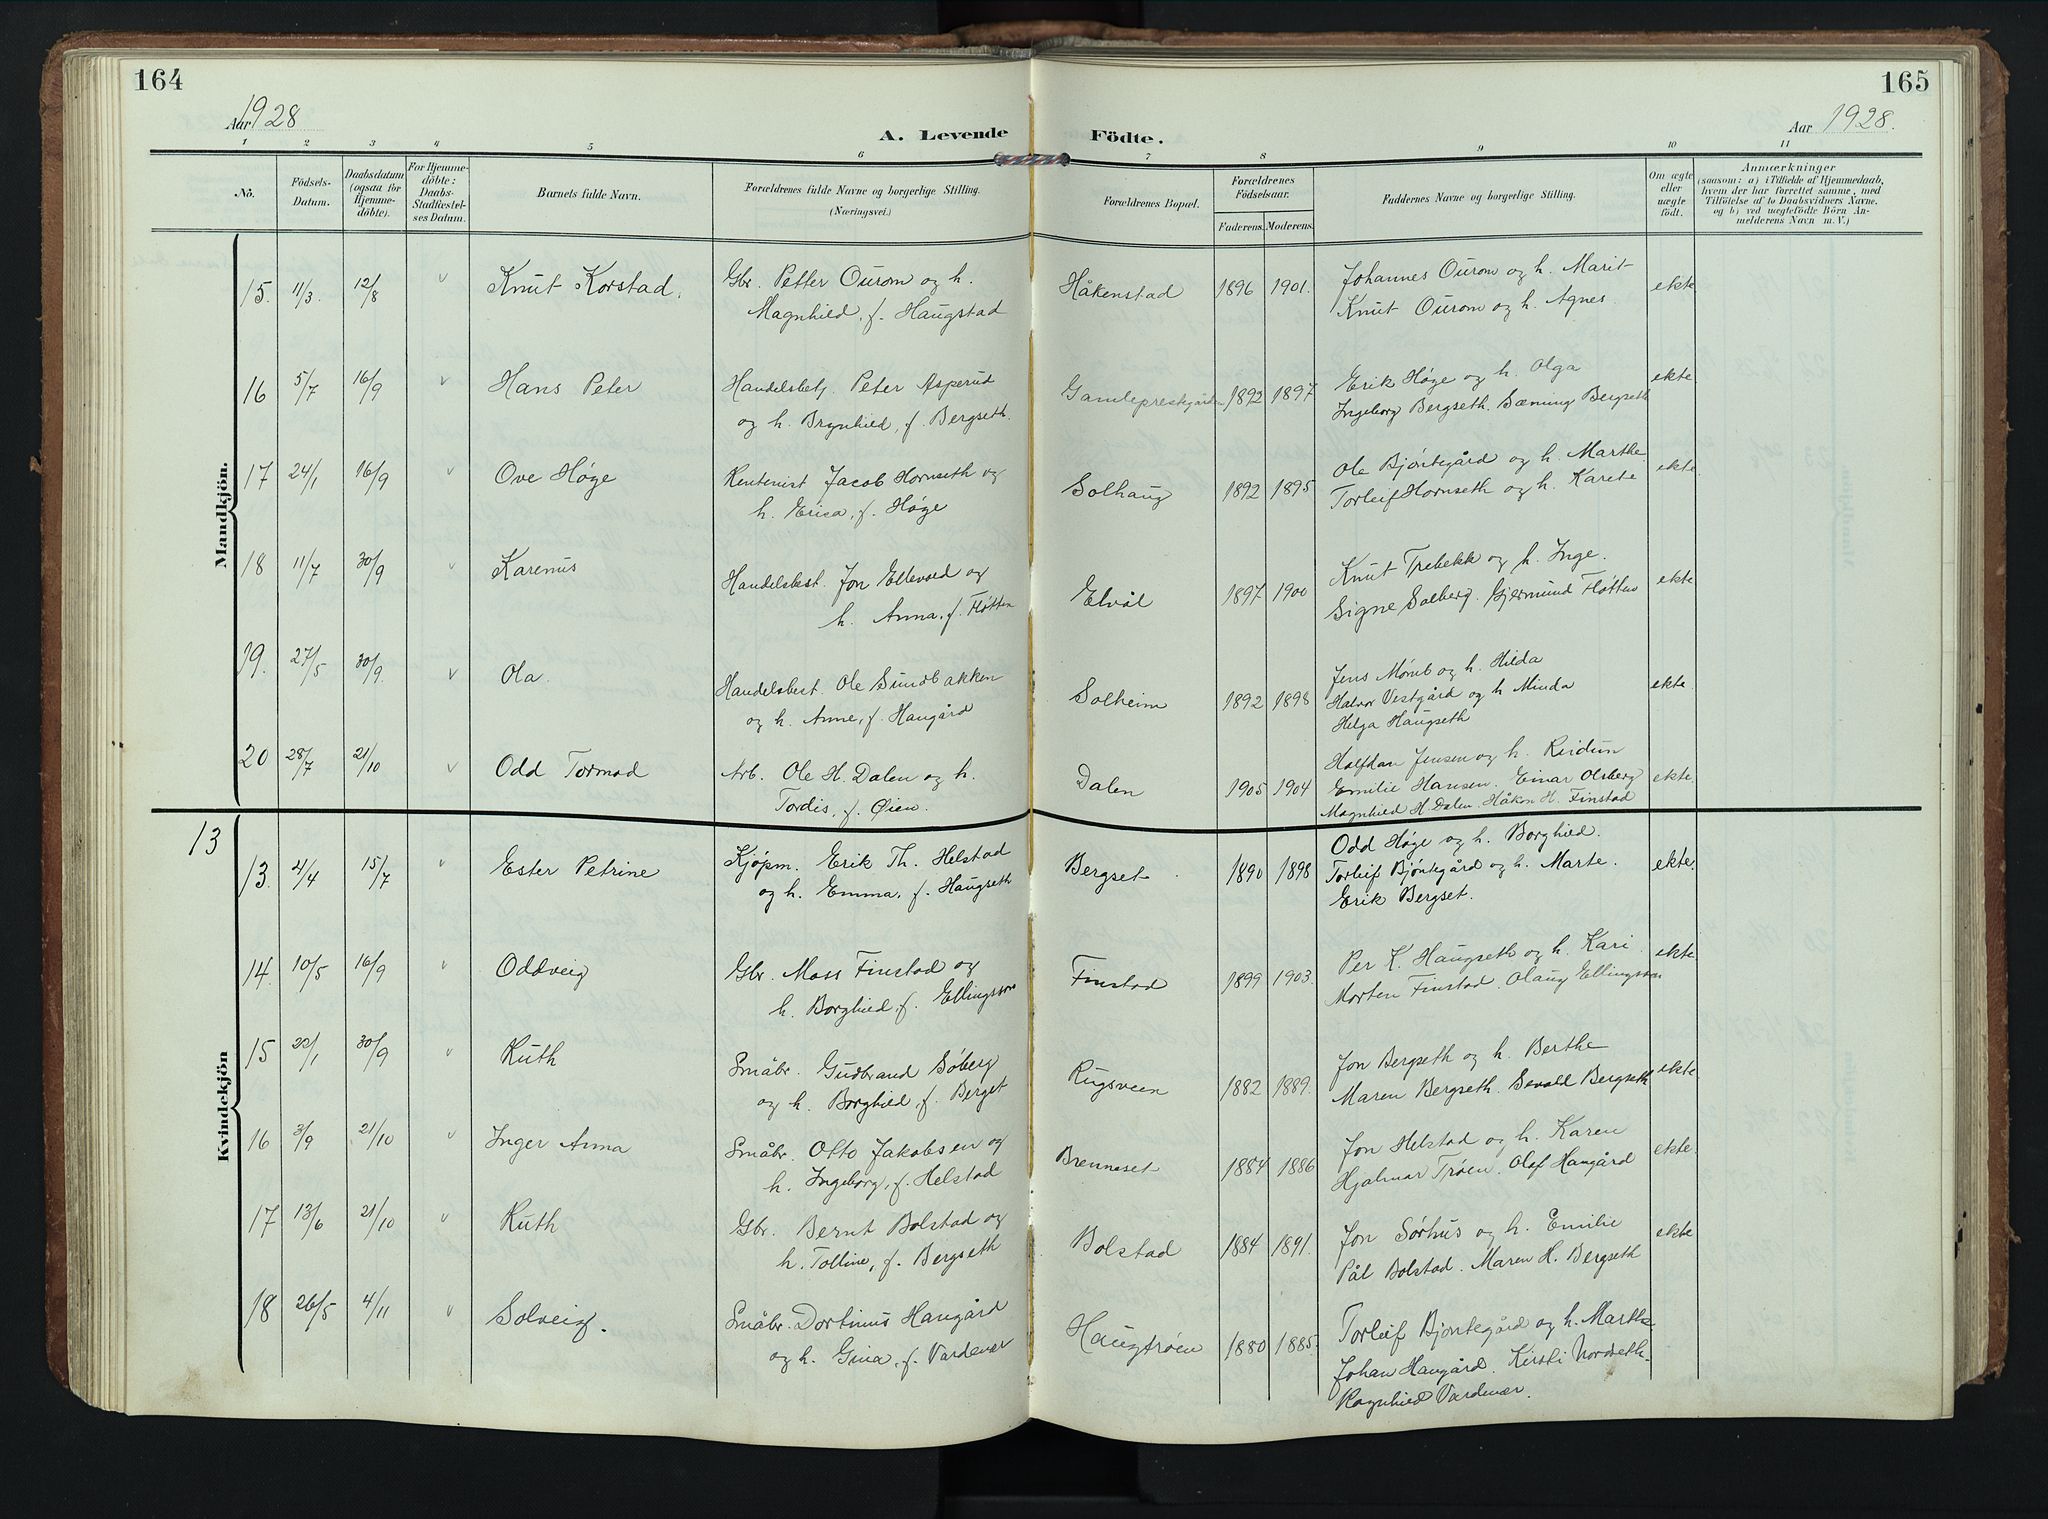 164
165
Aar 1928
A. Levende Födte.
Aar 1928.
1 2 3 4 5 6 7 8 9 10 11
Nô.
Födsels-
Datum.
Daabsdatum
(ogsaa for
Hjemme-
döbte).
For Hjemme-
döbte:
Daabs-
Stadfæstel-
ses Datum.
Barnets fulde Navn.
Forældrenes fulde Navne og borgerlige Stilling.
(Næringsvei.)
Forældrenes Bopæl.
Forældrenes
Födselsaar.
Faderens. Moderens.
Faddernes Navne og borgerlige Stilling.
Om ægte
eller
uægte
födt.
Anmærkninger
(saasom: a) i Tilfælde af Hjemmedaab,
hvem der har forrettet samme, med
Tilföielse af to Daabsvidners Navne,
og b) ved uegtefödte Börn An-
melderens Navn m. V.)
Mandkjön.
15. 11/3. 12/8 v Knut Korstad. Gbr. Petter Ourom og h. Håkenstad 1896 1901. Johannes Ourom og h. Marit- ekte
Magnhild, f. Haugstad Knut Ourom og h. Agnes.
16 5/7 16/9 v Hans Peter Handelsbetj. Peter Asperud Gamleprestgården 1892 1897 Erik Høge og h. Olga ekte
og h. Brynhild, f. Bergseth. Ingeborg Bergseth. Sæming Bergseth
17 24/1 16/9 v Ove Høge Rentenist Jacob Hornseth og Solhaug 1892 1895 Ole Bjöntegård og h. Marthe ekte
h. Erica, f. Høge Torleif Hornseth og h. Karete
18 11/7 30/9 v Karenus Handelsbest. Jon Ellevold og Elvål 1897 1900 Knut Trebekk og h. Inge. ekte
h. Anna, f. Fløtten Signe Solberg. Gjermund Fløtten
19. 27/5 30/9. v Ola. Handelsbest. Ole Sundbakken Solheim 1892 1898 Jens Mömb og h. Hilda ekte
og h. Anne, f. Haugård Halvor Vestgård og h Minda
Helga Haugseth
20 28/7 21/10 v Odd Tormod Arb. Ole H. Dalen og h. Dalen 1905 1904 Halfdan Jensen og h. Reidun ekte
Tordis, f. Øien. Emilie Hansen. Einar Olsberg
Magnhild H. Dalen. Håkon H. Finstad
13
Kvindekjön
13. 21/4 15/7 v Ester Petrine Kjøpm. Erik Th. Helstad Bergset 1890 1898 Odd Høge og h. Borghild. ekte.
og h. Emma, f. Haugseth Torleif Bjöntegård og h. Marte.
Erik Bergset.
14. 10/5 16/9 v Oddveig Gbr. Moss Finstad og Finstad 1899 1903. Per K. Haugseth og h. Kari. ekte
h. Borghild, f. Ellingsson Morten Finstad. Olaug Ellingsson
15 22/1 30/9 v Ruth Småbr. Gudbrand Søberg Rugsveen 1882 1889. Jon Bergseth og h. Berthe ekte
og h. Borghild, f. Berget Maren Bergseth. Sevald Bergseth
16 3/9 21/10 v Inger Anna Småbr. Otto Jakobsen og Brenneset 1884 1886 Jon Helstad og h. Karen ekte.
h. Ingeborg, f. Helstad Hjalmar Trøen. Olaf Haugård
17 13/6 21/10 v Ruth Gbr. Bernt Bolstad og Bolstad 1884 1891. Jon Sørhus og h. Emilie ekte
h. Tolline, f. Bergseth Pål Bolstad. Maren H. Bergseth
18 26/5 4/11 v Solveig. Småbr. Dortinus Haugård Haugtrøen 1880 1885. Torleif Bjöntegård og h. Marthe
og h. Gina, f. Vardenær Johan Haugård. Kirsti Nordseth.
Ragnhild Vardenær.